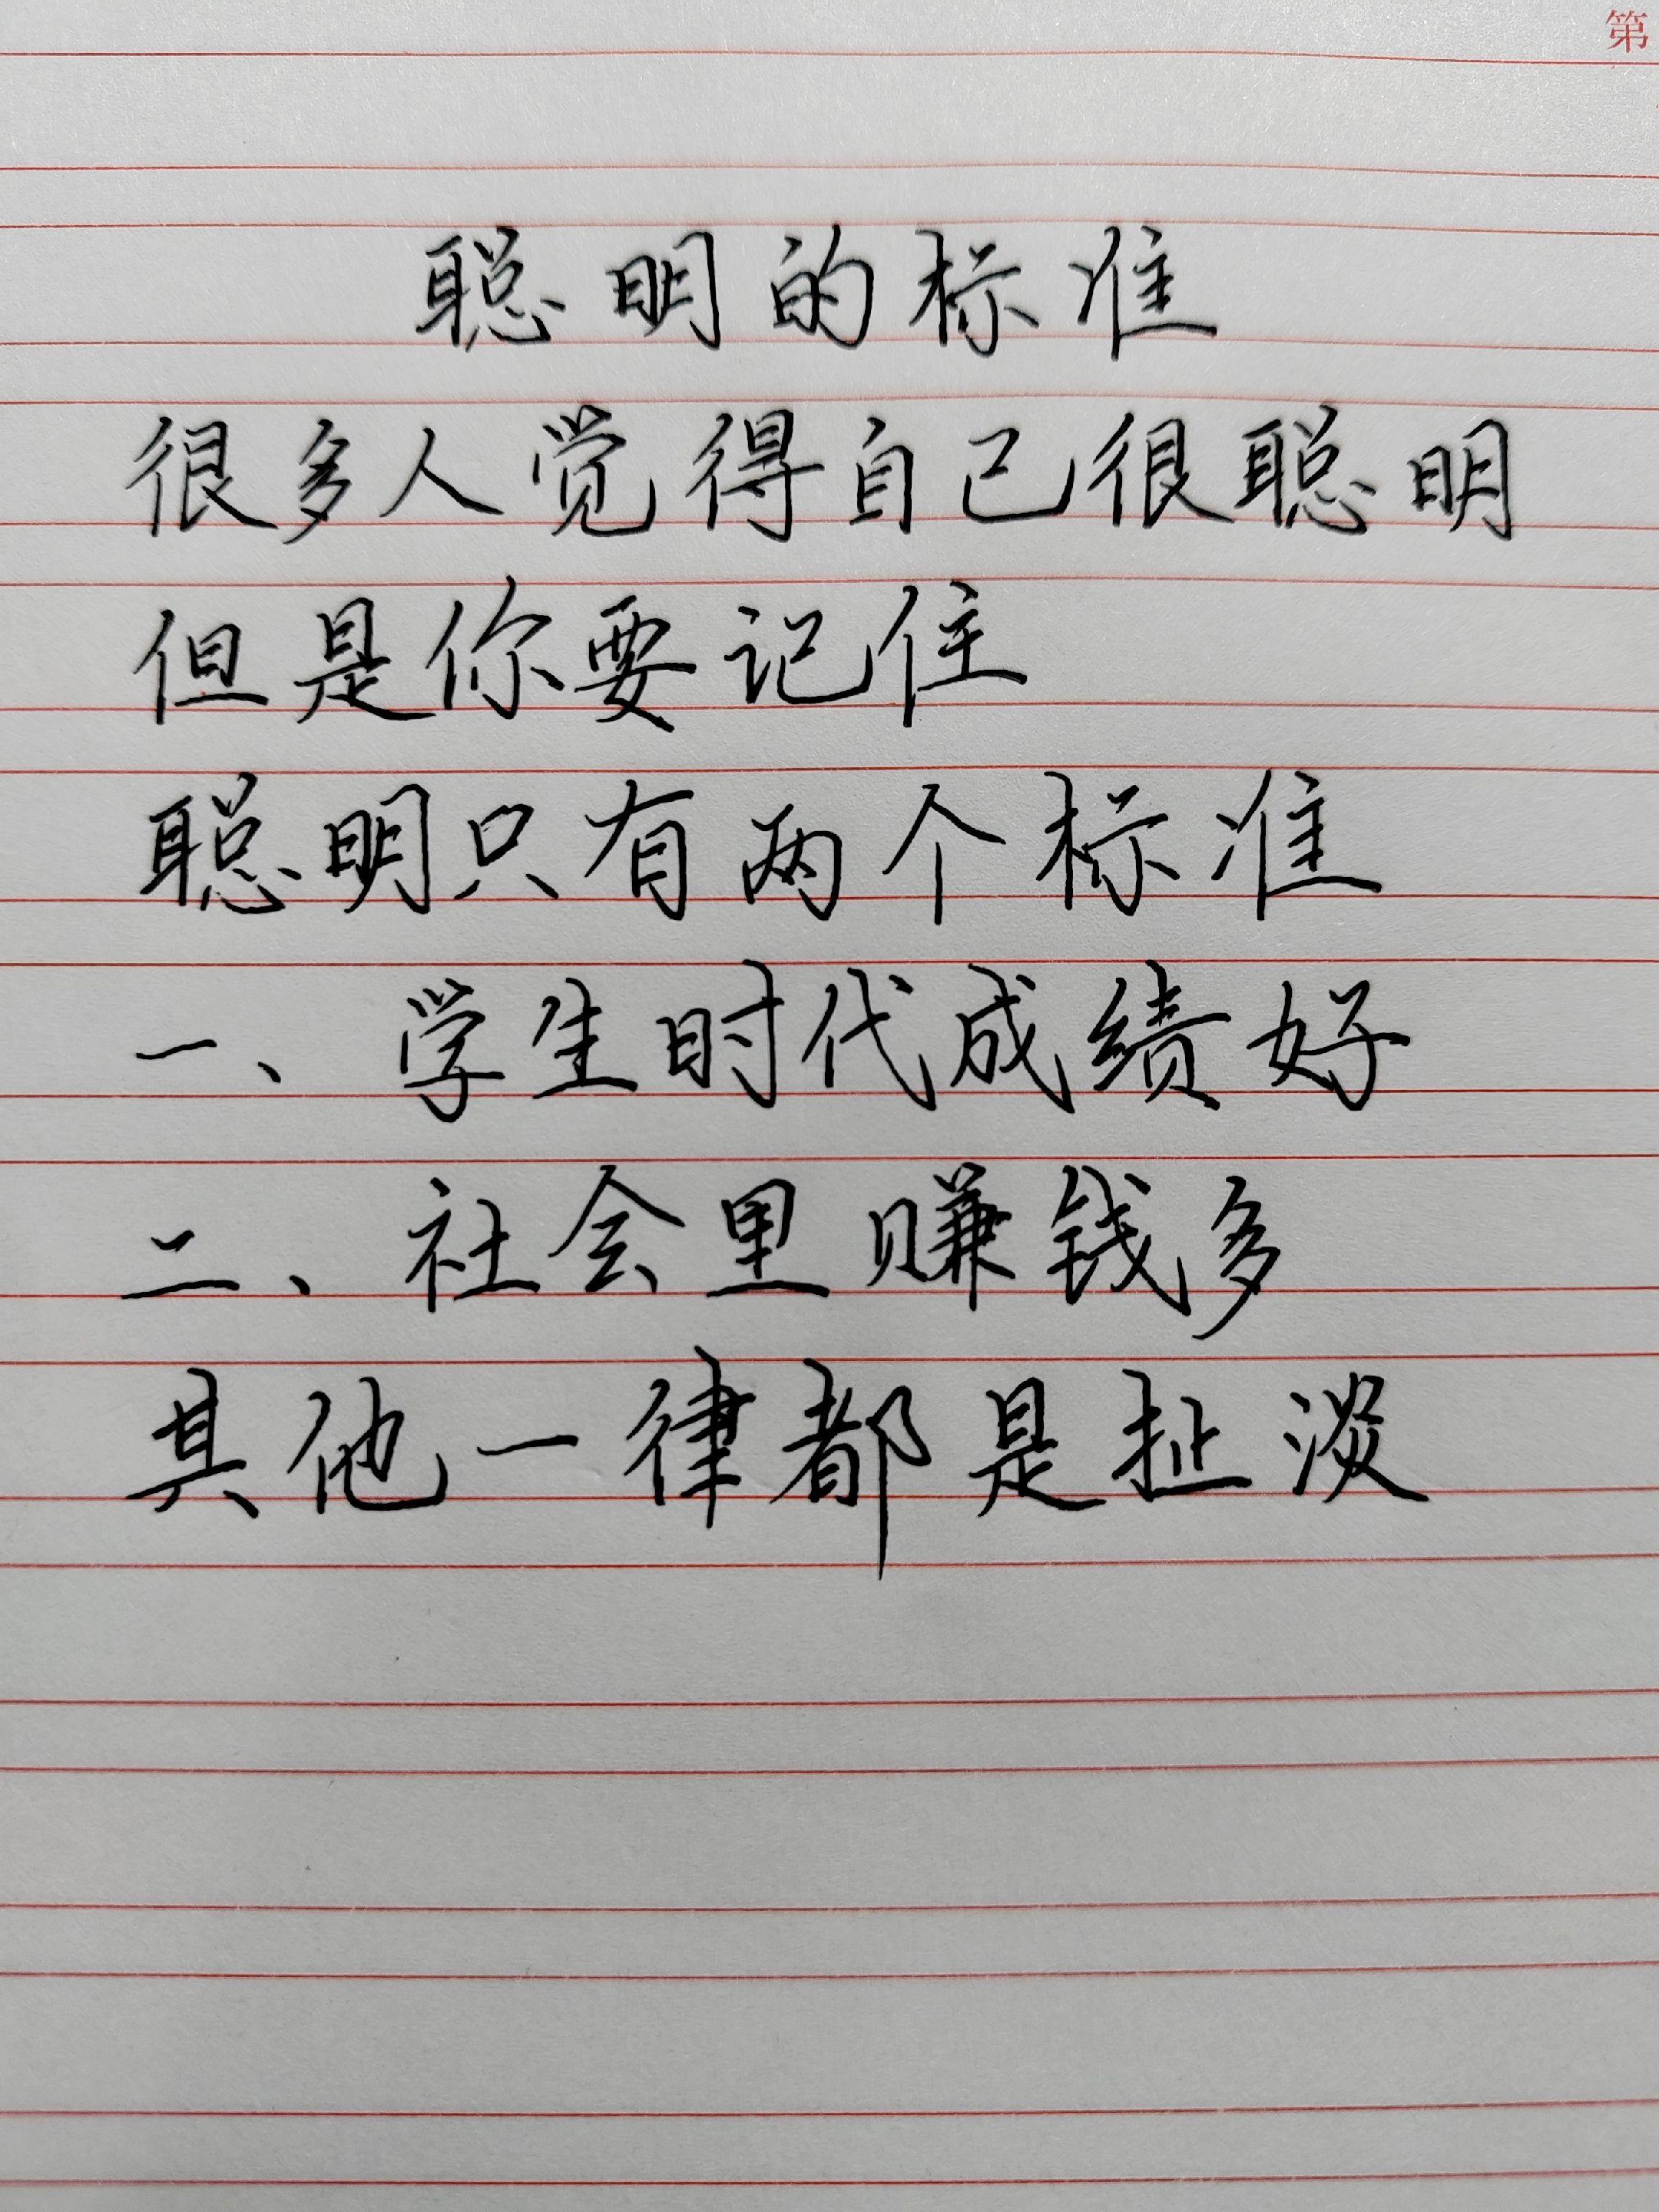 第
聪明的标准
很多人觉得自己很聪明
但是你要记住
聪明只有两个标准
一、学生时代成绩好
二、社会里赚钱多
其他一律都是扯淡